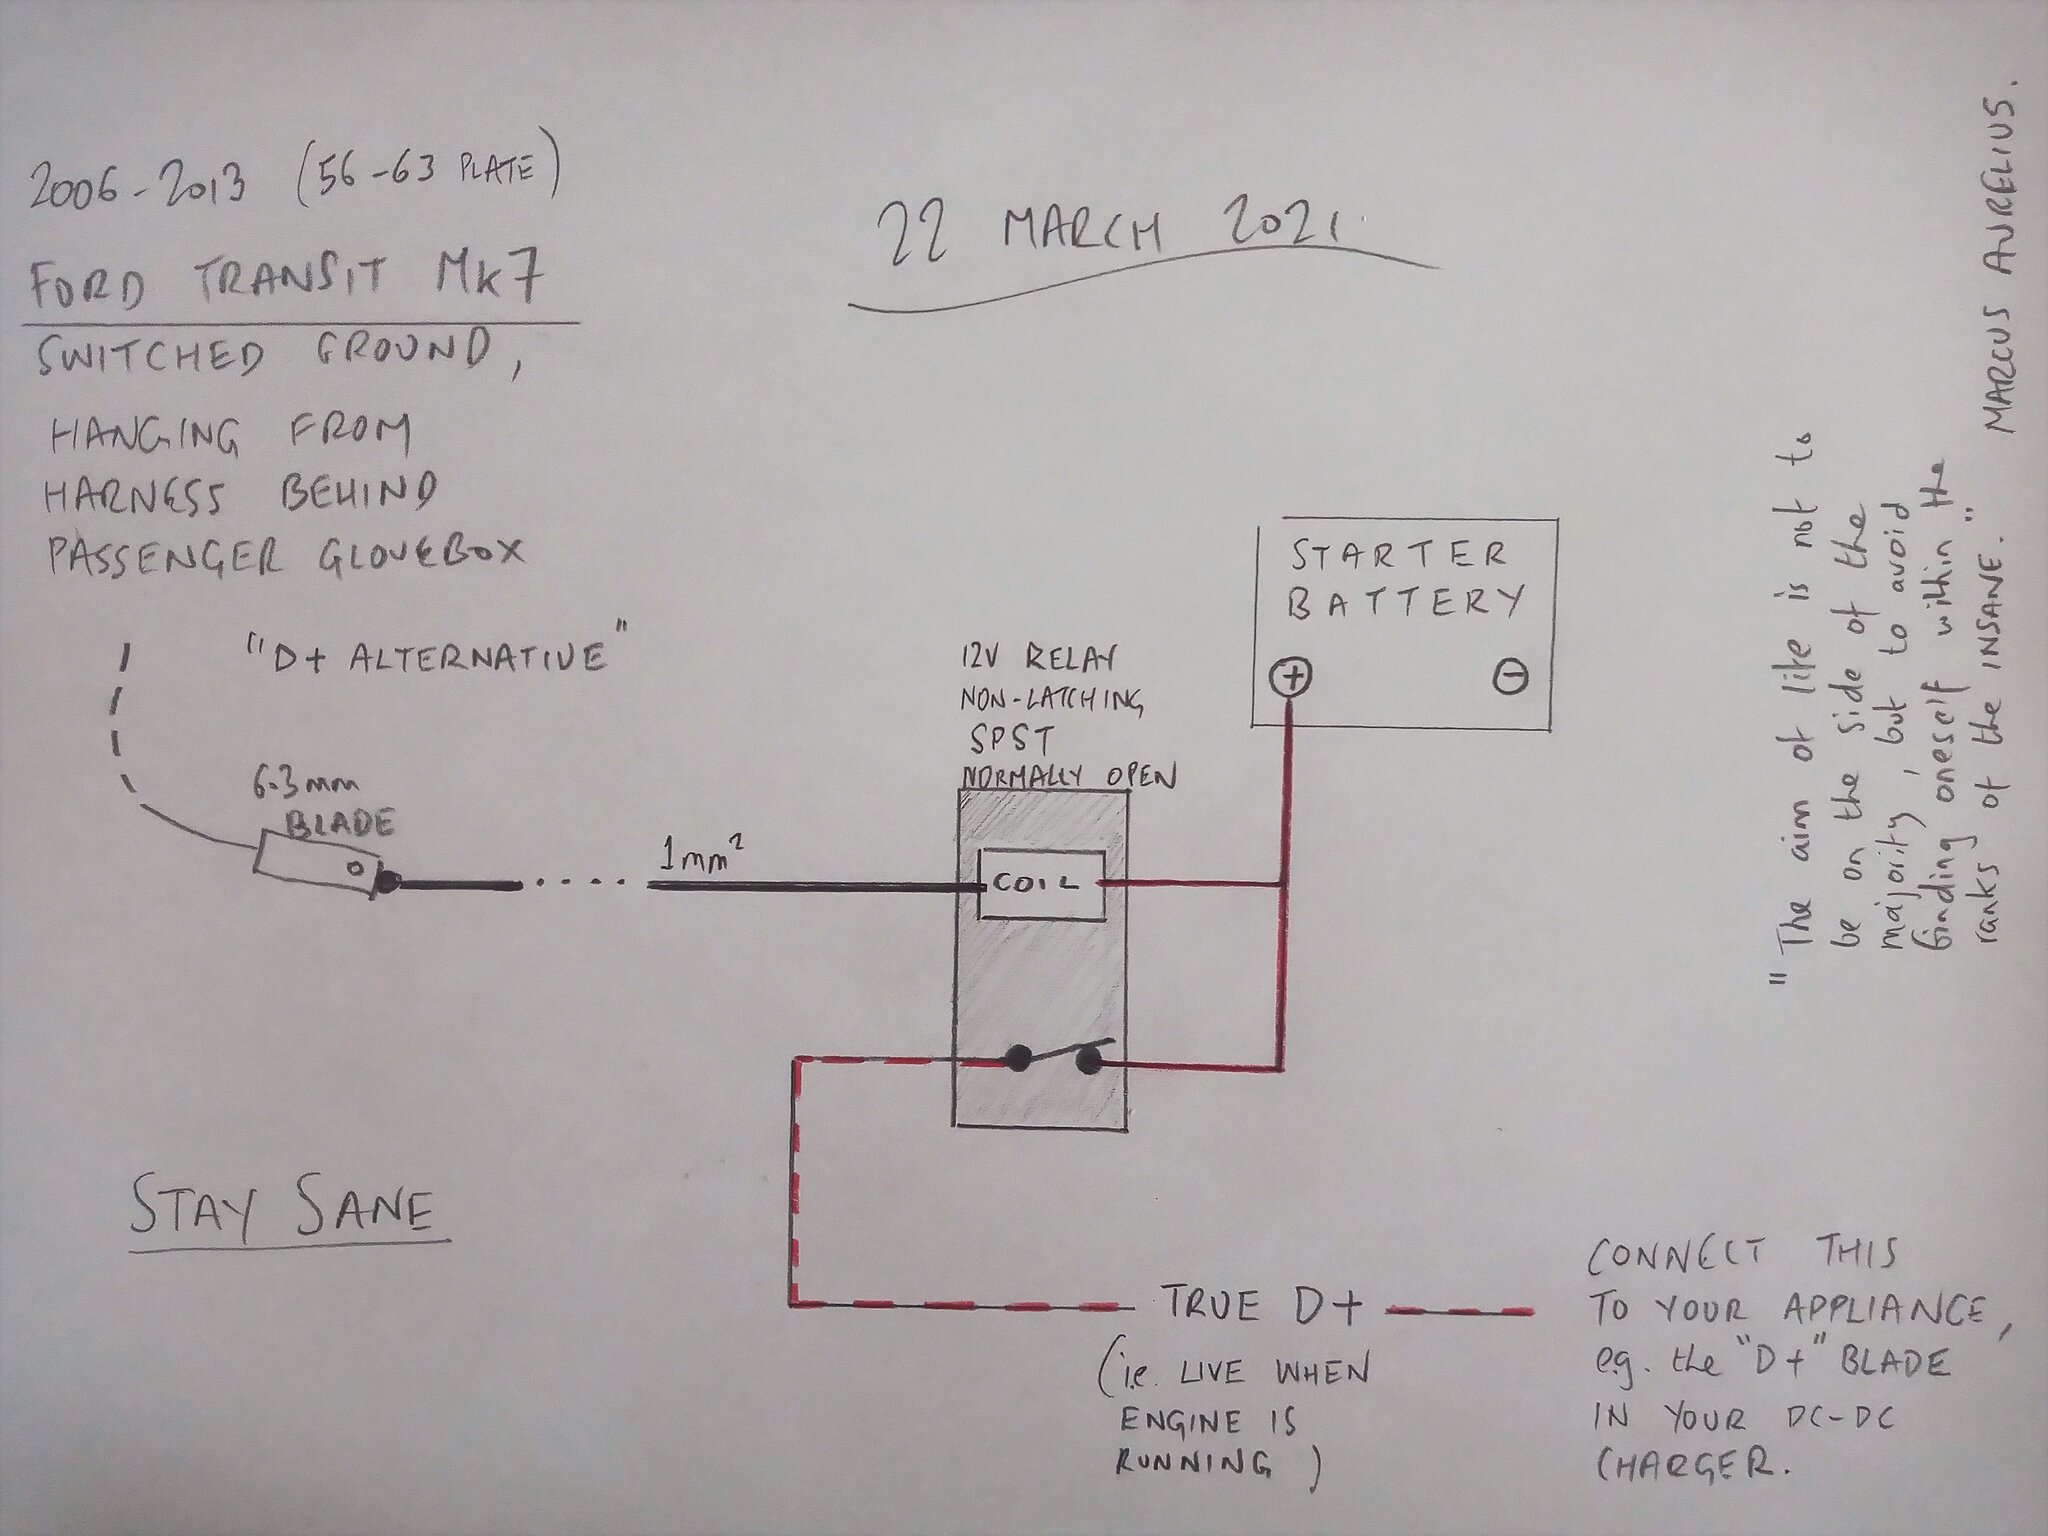 2006-2013 (56-63 PLATE)
FORD TRANSIT MK7
SWITCHED GROUND,
HANGING FROM
HARNESS BEHIND
PASSENGER GLOVEBOX
"D+ ALTERNATIVE"
6.3mm
BLADE
1mm²
22 MARCH 2021.
12V RELAY
NON-LATCHING
SPST
NORMALLY OPEN
COIL
STARTER
BATTERY
+
-
STAY SANE
TRUE D+
(i.e. LIVE WHEN
ENGINE IS
RUNNING)
CONNECT THIS
TO YOUR APPLIANCE,
e.g. the "D+" BLADE
IN YOUR DC-DC
CHARGER.
"The aim of life is not to
be on the side of the
majority, but to avoid
finding oneself within the
ranks of the INSANE."
MARCUS AURELIUS.